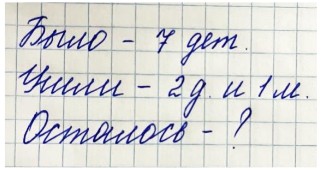 Было - 7 дет.
Ушли - 2 д. и 1 м.
Осталось - ?